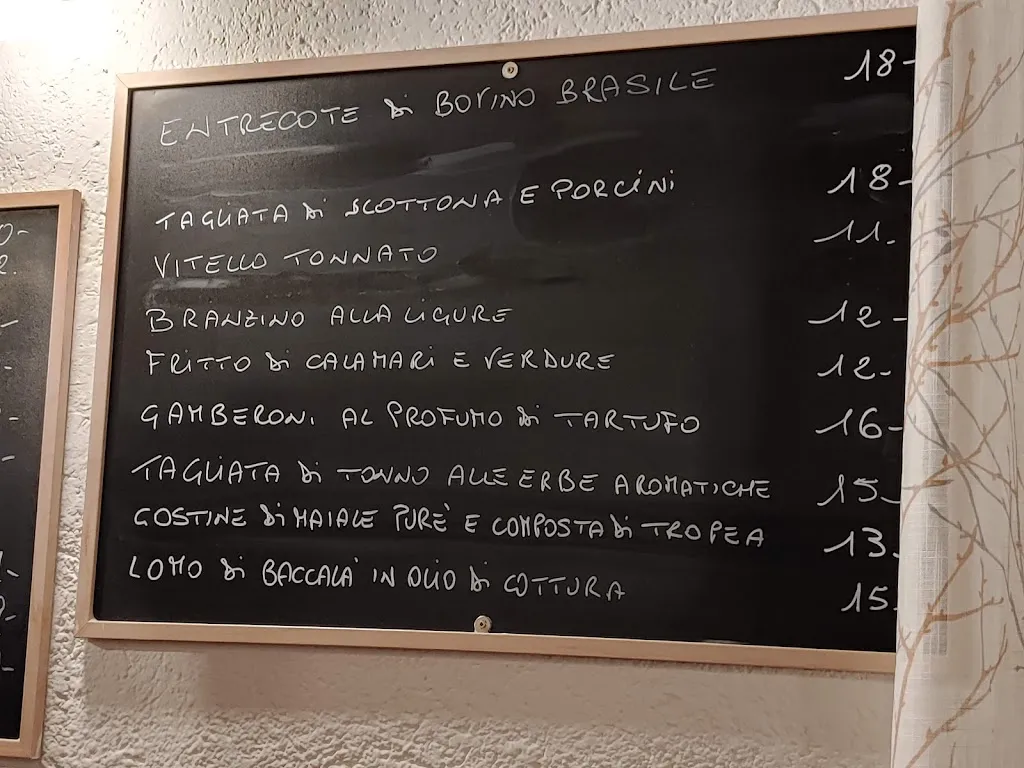 ENTRECOTE di BOVINO BRASILE 18-
TAGLIATA di SCOTTONA E PORCINI 18-
VITELLO TONNATO 11.
BRANZINO ALLA LIGURE 12-
FRITTO di CALAMARI E VERDURE 12-
GAMBERONI AL PROFUMO di TARTUFO 16-
TAGLIATA di TONNO ALLE ERBE AROMATICHE 15-
COSTINE di MAIALE PURÈ E COMPOSTA di TROPEA 13.
LOMO di BACCALA' IN OLIO di COTTURA 15.